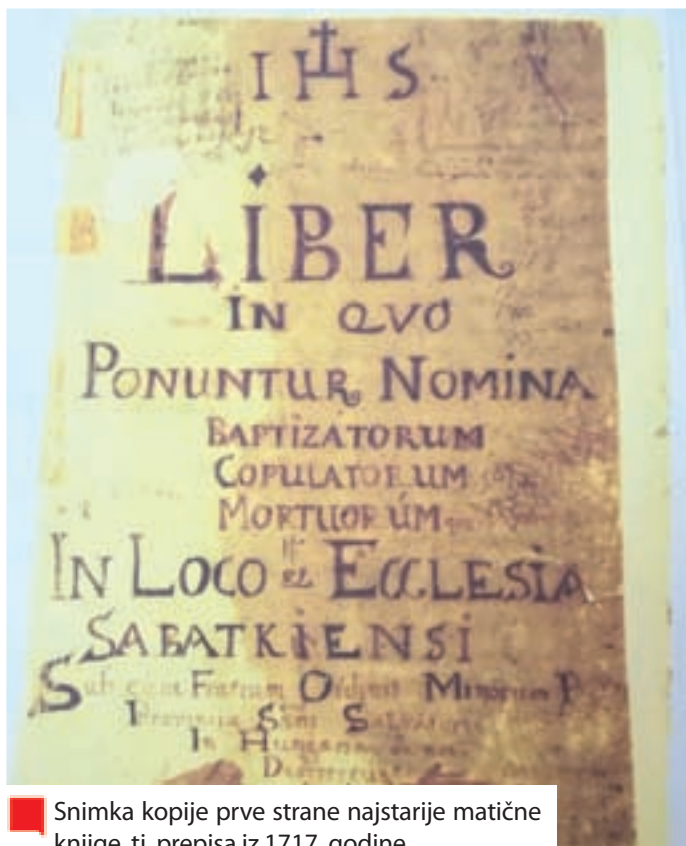 IHS
LIBER
IN QVO
PONUNTUR NOMINA
BAPTIZATORUM
COPULATORUM
MORTUORÚM
IN LOCO et ECCLESIA
SABATKIENSI
Sub cura Fratrum Ordinis Minorum P
Provincia S Salvatoris
In Hungaria
Snimka kopije prve strane najstarije matične
knjige, tj. prepisa iz 1717. godine